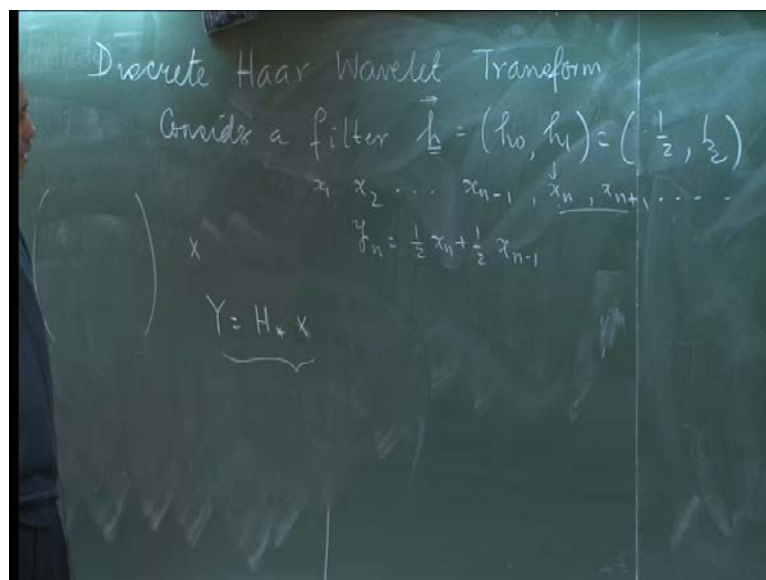 Discrete Haar Wavelet Transform
Consider a filter h⃗ = (h₀, h₁) = (½, ½)
x₁ x₂ ... xₙ₋₁, xₙ, xₙ₊₁ ....
( ) x yₙ = ½ xₙ + ½ xₙ₋₁
Y = H * x